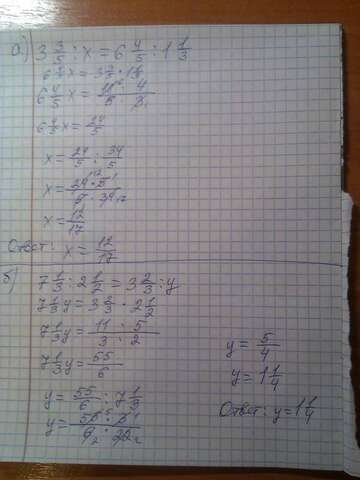 а) 3 3/5 : x = 6 4/5 : 1 1/3
6 4/5 x = 3 3/5 · 1 1/3
6 4/5 x =
6 4/5 x = 24/5
x = 24/5 : 34/5
x = 24 · 5 / 5 · 34
x = 12/17
Ответ: x = 12/17
б) 7 1/3 : 2 1/2 = 3 2/3 : y
7 1/3 y = 3 2/3 · 2 1/2
7 1/3 y = 11 · 5 / 3 · 2
7 1/3 y = 55/6
y = 55/6 : 7 1/3
y = 55 · 3 / 6 · 22
y = 5/4
y = 1 1/4
Ответ: y = 1 1/4